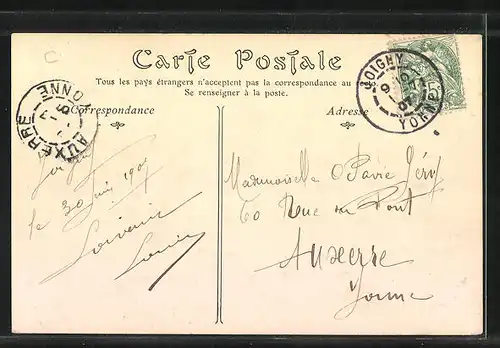 C
Carte Postale
Tous les pays étrangers n'acceptent pas la correspondance au
Se renseigner à la poste.
Correspondance
Adresse
JOIGNY
YONNE
AUXERRE
YONNE
5
le 30 juin 190
Souvenir
Mademoiselle
60 Rue du Pont
Auxerre
Yonne